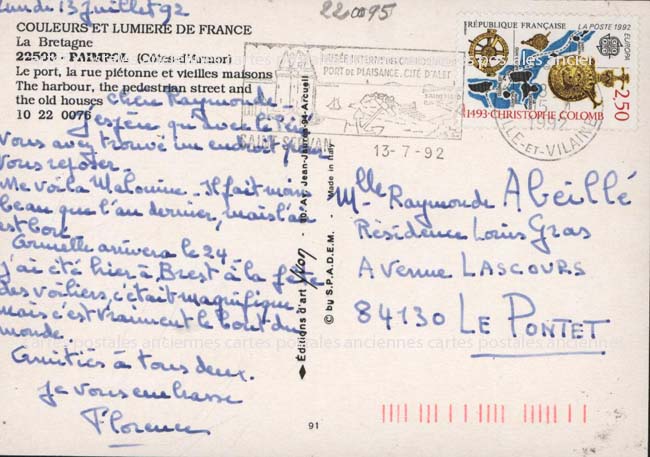 Lundi 13 Juillet 92
22095
COULEURS ET LUMIERE DE FRANCE
La Bretagne
22500 - PAIMPOL (Côtes-d'Armor)
Le port, la rue piétonne et vieilles maisons
The harbour, the pedestrian street and
the old houses
10 22 0076
chère Raymonde -
J'espère qu'avec le Père
vous avez trouvé un endroit pour
vous reposer.
Me voilà Malouine - Il fait moins
beau que l'an dernier, mais l'air
est bon.
Armelle arrivera le 24
j'ai été hier à Brest à la fête
des voiliers, c'était magnifique
mais c'est vraiment le bout du
monde.
Amitiés à tous deux.
Je vous embrasse
Florence
Editions d'art Yvon - 10, Av. Jean-Jaurès - 94-Arcueil
© by S.P.A.D.E.M. - Made in Italy
91
PORT DE PLAISANCE. CITÉ D'ALET
13-7-92
RÉPUBLIQUE FRANÇAISE
LA POSTE 1992
EUROPA
1493-CHRISTOPHE COLOMB
2,50
1992
ILLE-ET-VILAINE
Mlle Raymonde Abeillé
Résidence Louis Gras
Avenue LASCOURS
84130 LE PONTET
cartes postales anciennes cartes postales anciennes cartes postales anciennes